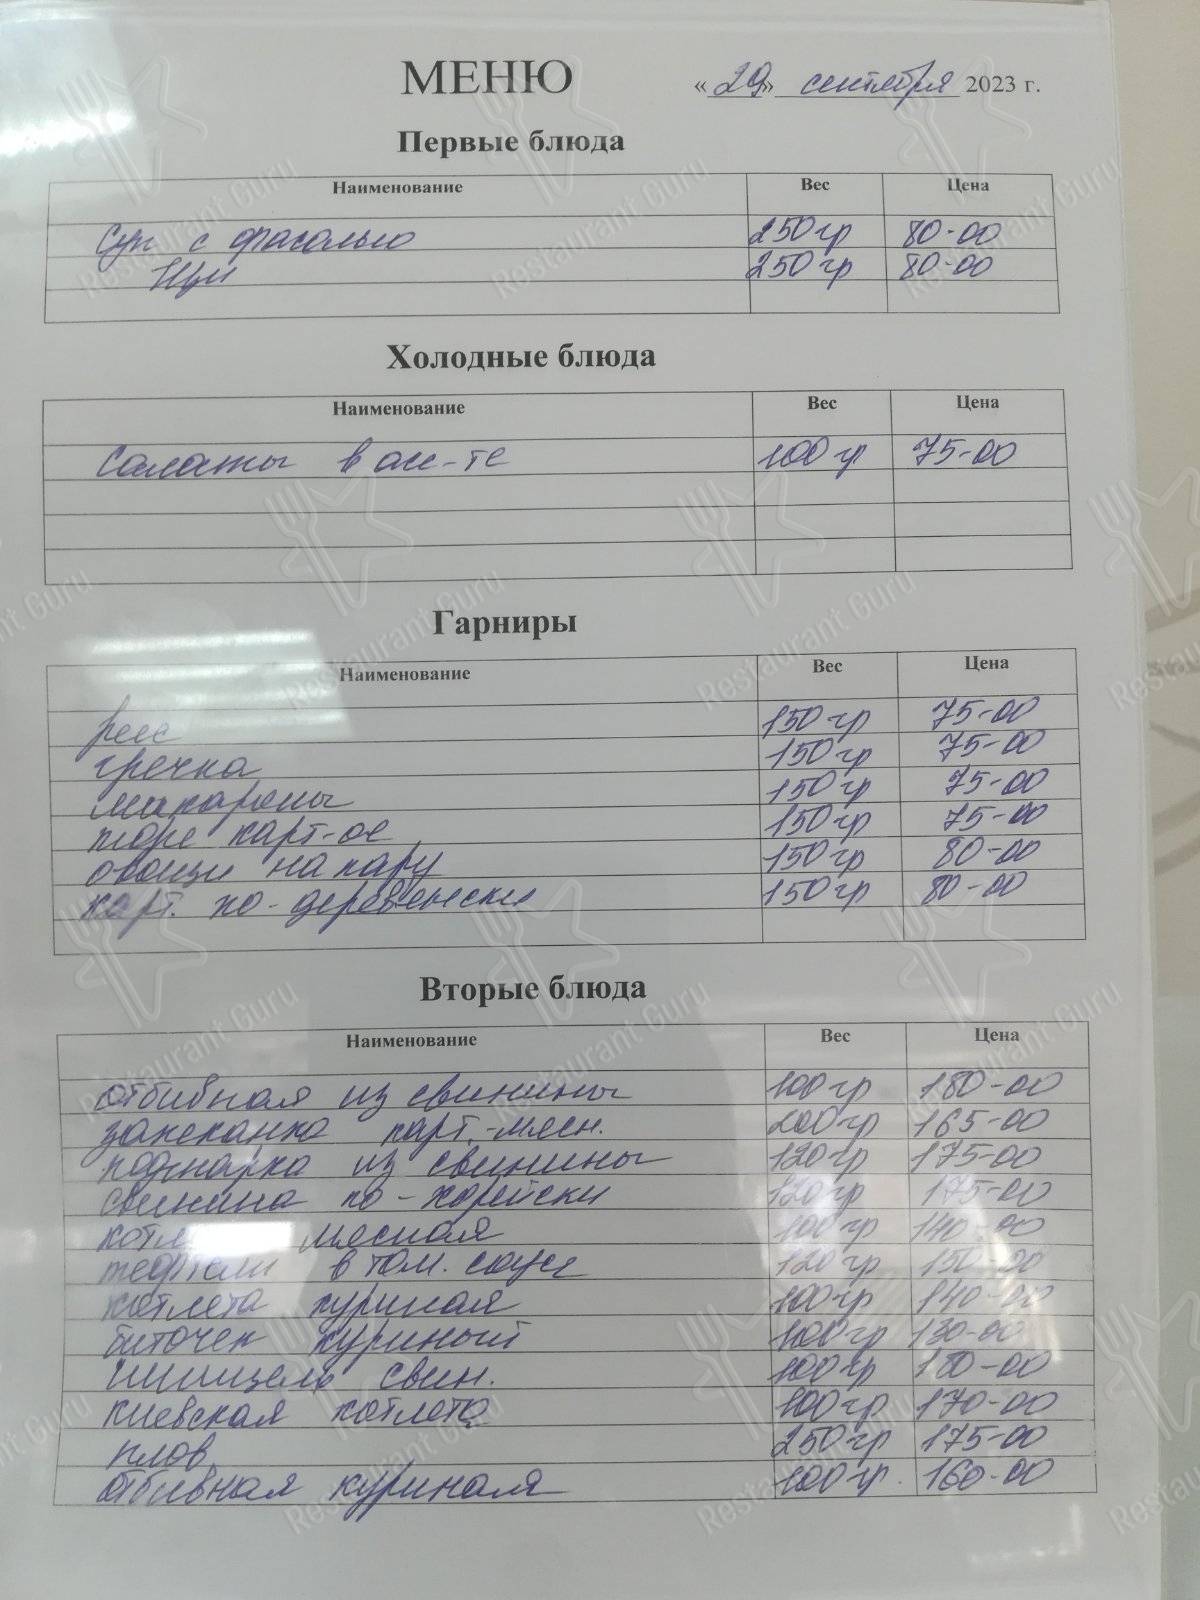 МЕНЮ «29» сентября 2023 г.
Первые блюда
Наименование Вес Цена
Суп с фасолью 250 гр 80-00
Щи 250 гр 80-00
Холодные блюда
Наименование Вес Цена
Салаты в асс-те 100 гр 75-00
Гарниры
Наименование Вес Цена
рис 150 гр 75-00
гречка 150 гр 75-00
макароны 150 гр 75-00
пюре карт-ое 150 гр 75-00
овощи на пару 150 гр 80-00
карт. по-деревенски 150 гр 80-00
Вторые блюда
Наименование Вес Цена
отбивная из свинины 100 гр 180-00
запеканка карт.-мясн. 200 гр 165-00
поджарка из свинины 120 гр 175-00
свинина по-корейски 120 гр 175-00
мясная 100 гр 140-00
тефтели в том. соусе 120 гр 150-00
котлета куриная 100 гр 140-00
биточек куриный 100 гр 130-00
шницель свин. 100 гр 180-00
киевская котлета 100 гр 170-00
плов 250 гр 175-00
отбивная куриная 100 гр. 160-00
Restaurant Guru